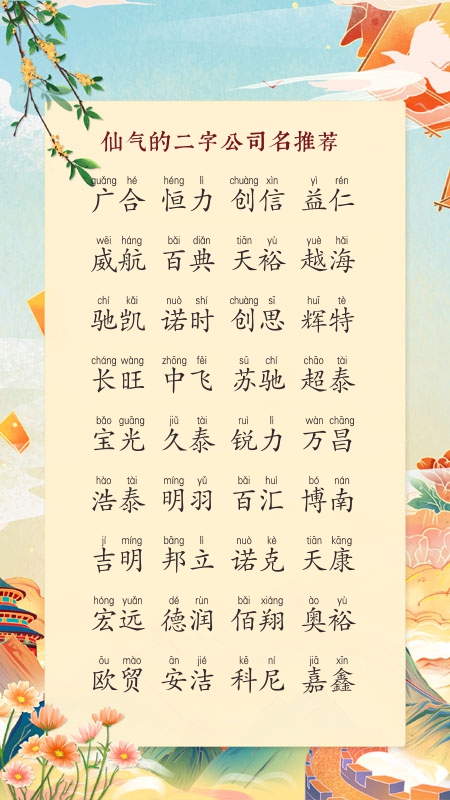 仙气的二字公司名推荐
guǎng hé héng lì chuàng xìn yì rén
广合 恒力 创信 益仁
wēi háng bǎi diǎn tiān yù yuè hǎi
威航 百典 天裕 越海
chí kǎi nuò shí chuàng sī huī tè
驰凯 诺时 创思 辉特
cháng wàng zhōng fēi sū chí chāo tài
长旺 中飞 苏驰 超泰
bǎo guāng jiǔ tài ruì lì wàn chāng
宝光 久泰 锐力 万昌
hào tài míng yǔ bǎi huì bó nán
浩泰 明羽 百汇 博南
jí míng bāng lì nuò kè tiān kāng
吉明 邦立 诺克 天康
hóng yuǎn dé rùn bǎi xiáng ào yù
宏远 德润 佰翔 奥裕
ōu mào ān jié kē ní jiā xīn
欧贸 安洁 科尼 嘉鑫